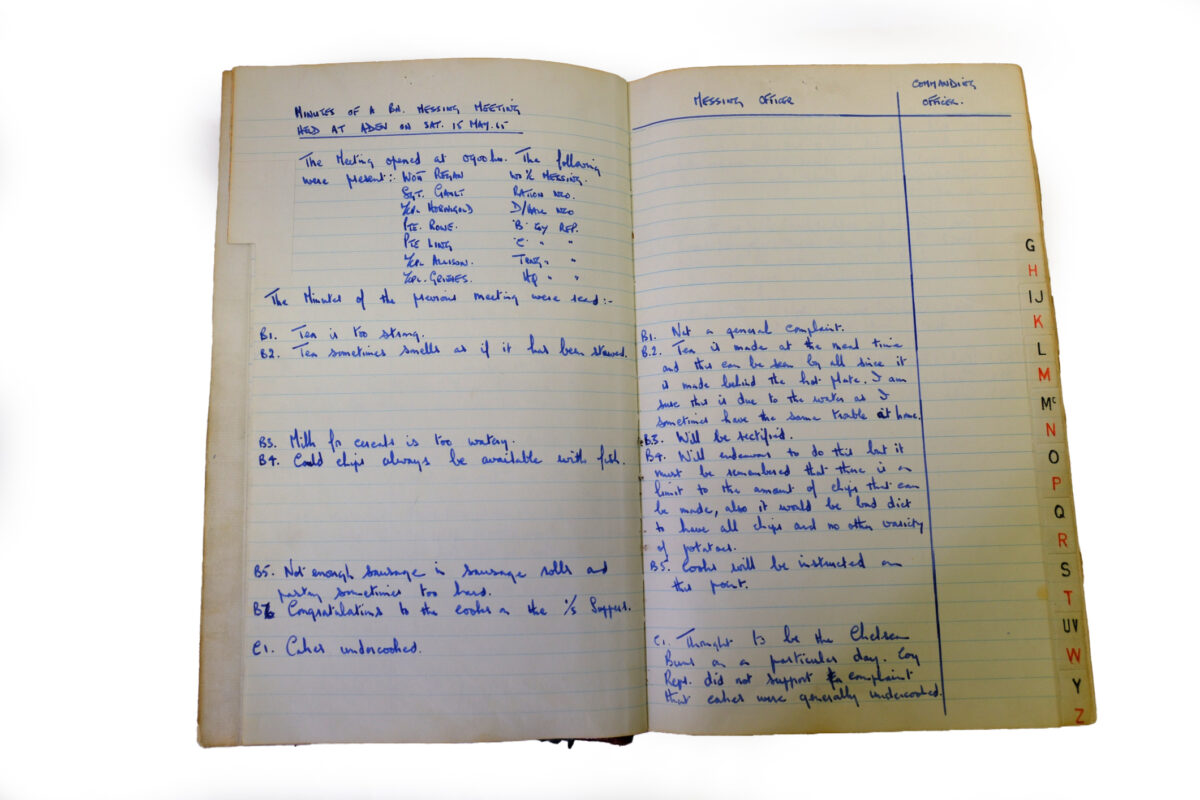 MINUTES OF A BN. MESSING MEETING
HELD AT ADEN ON SAT. 15 MAY. 65
The Meeting opened at 0900 hrs. The following
were present:- WOII REGAN WO i/c MESSING.
SGT. GAULT RATION NCO.
L/CPL HORNGOLD D/HALL NCO
PTE. ROWE. 'B' COY REP.
PTE LING 'C' " "
L/CPL ALLISON. " "
L/CPL. GRIMES. HQ " "
The Minutes of the previous meeting were read:-
B1. Tea is too strong.
B2. Tea sometimes smells as if it has been stewed.
B3. Milk for cereals is too watery.
B4. Could chips always be available with fish.
B5. Not enough sausage in sausage rolls and
pastry sometimes too hard.
B6 Congratulations to the cooks on the Suppers.
C1. Cakes undercooked.
MESSING OFFICER
COMMANDING
OFFICER.
B1. Not a general complaint.
B.2. Tea is made at the meal time
and this can be seen by all since it
is made behind the hot plate. I am
sure this is due to the water as I
sometimes have the same trouble at home.
B.3. Will be rectified.
B4. Will endeavour to do this but it
must be remembered that there is a
limit to the amount of chips that can
be made, also it would be bad diet
to have all chips and no other variety
of potatoes.
B5. Cooks will be instructed on
this point.
C1. Thought to be the Chelsea
Buns on a particular day. Coy
Reps. did not support a complaint
that cakes were generally undercooked.
G
H
IJ
K
L
M
Mc
N
O
P
Q
R
S
T
UV
W
Y
Z